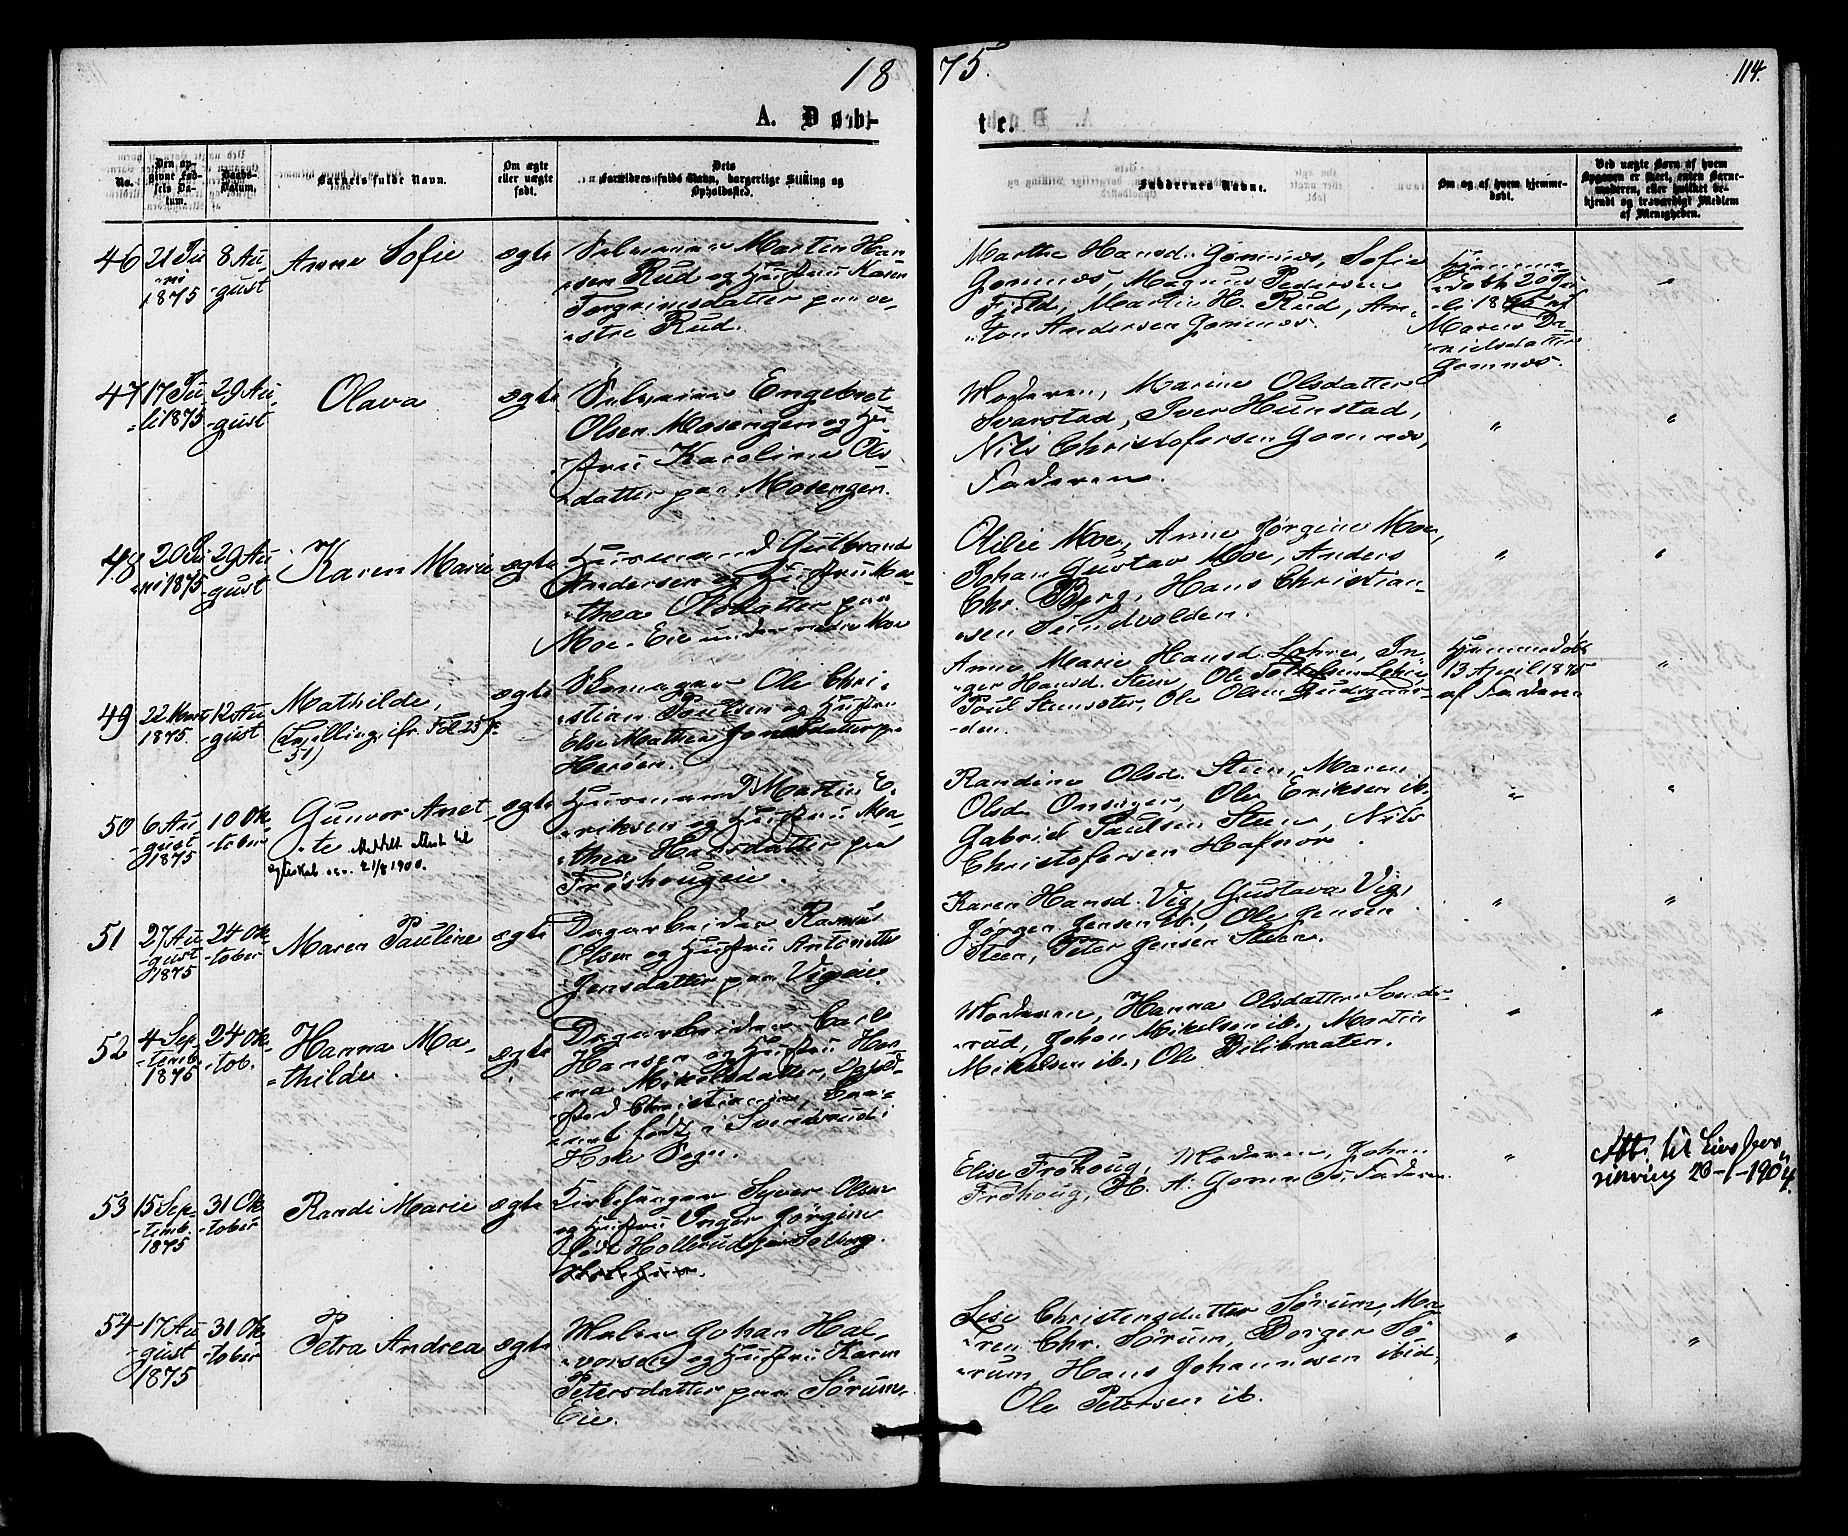 18 75.
114.
A. Døb-
te.
No.
Den opgivne Fødsels Datum.
Daabs-Datum.
Barnets fulde Navn.
Om ægte eller uægte født.
Dets Forældres fulde Navn, borgerlige Stilling og Opholdssted.
Faddernes Navne.
Om og af hvem hjemmedøbt.
Ved uægte Børn af hvem Opgaven er skeet, enten Barnemoderen, eller hvilket bekjendt og troværdigt Medlem af Menigheden.
46
21 Ju-
-ni
1875
8 Au-
-gust
Anne Sofie
ægte
Selveier Martin Han-
-sen Rud og Hustru Karen
Torgrimsdatter paa ve-
-stre Rud.
Marthe Hansd. Gomnæs, Sofie
Gomnæs, Magnus Pedersen
Fjeld, Martin H. Rud, An-
-ton Andersen Gomnæs.
Hjemme-
-døbt 20 Ju-
-li 1875 af
Maren Da-
-nielsdatter
Gomnæs.
"
47
17 Ju-
-li 1875
29 Au-
-gust
Olava
ægte
Selveier Engebret
Olsen Mosengen og Hu-
-stru Karoline Ols-
-datter paa Mosengen.
Moderen, Marine Olsdatter
Svarstad, Iver Hunstad,
Nils Christofersen Gomnæs,
Faderen.
"
"
48
20 Ju-
-ni 1875
29 Au-
-gust
Karen Marie
ægte
Husmand Gulbrand
Andersen og Hustru Ma-
-thea Olsdatter paa
Moe-Eie under nedre Moe
Olilie Moe, Anne Jørgine Moe,
Johan Gustav Moe, Anders
Chr. Berg, Hans Christian-
-sen Sundvolden.
"
"
49
22 Marts
1875.
12 Au-
-gust
Mathilde,
51)
ægte
Skomager Ole Chri-
-stian Paulsen og Hustru
Else Mathea Jonasdatter pa
Herøen.
Anne Marie Hansd. Lohre, In-
-ger Hansd. Steen, Ole Lohre,
Poul Stensæter, Ole Olsen Gudsgaar-
-den.
Hjemmedøbt
13 April 1875
af Faderen
"
50
6 Au-
-gust
1875
10 Ok-
-tober
Gunvor Anet-
-te Meddelt Attest til
ægteskab 21/8 1900.
ægte
Husmand Martin E-
-riksen og Hustru Ma-
-thea Hansdatter paa
Frøshougen.
Randine Olsd. Steen, Maren
Olsd. Onsager, Ole Eriksen ib,
Gabriel Paulsen Steen, Nils
Christofersen Hafnor.
"
"
51
27 Au-
-gust
1875
24 Ok-
-tober
Maren Pauline
ægte
Dagarbeider Rasmus
Olsen og Hustru Antonette
Jensdatter paa Vigeie.
Karen Hansd. Vig, Gustava Vig,
Jørgen Jensen ib., Ole Jensen
Steen, Peter Jensen Steen.
"
"
52
4 Sep-
-temb.
1875
24 Ok-
-tob.
Hanna Ma-
-thilde.
ægte
Dagarbeider Carl
Hansen og Hustru Han-
-na Mikelsdatter,
Christiania, Bar-
-net født i Svendsrud i
Hole Sogn.
Moderen, Hanna Olsdatter Sønde-
-rud, Johan Mikelsen ib., Martin
Mikelsen ib., Ole Bilibraaten.
"
"
53
15 Sep-
-temb.
1875
31 Ok-
-tober
Randi Marie
ægte
Kirkesanger Syver Olsen
og Hustru Inger Jørgine
født Hollerud paa Solberg.
Elise Frøhoug, Moderen, Johan
Frøhoug, H. A. Gomnæs, Faderen.
"
Att. til Livsfor-
sikring 23-1-1904.
54
17 Au-
-gust
1875
31 Ok-
-tober
Petra Andrea
ægte
Maler Johan Hal-
-vorsen og Hustru Karen
Petersdatter paa Sørum-
Eie.
Lise Christensdatter Sørum, Ma-
-ren Chr. Sørum, Borger Sø-
-rum, Hans Johannesen ibid,
Ole Petersen ib.
"
"